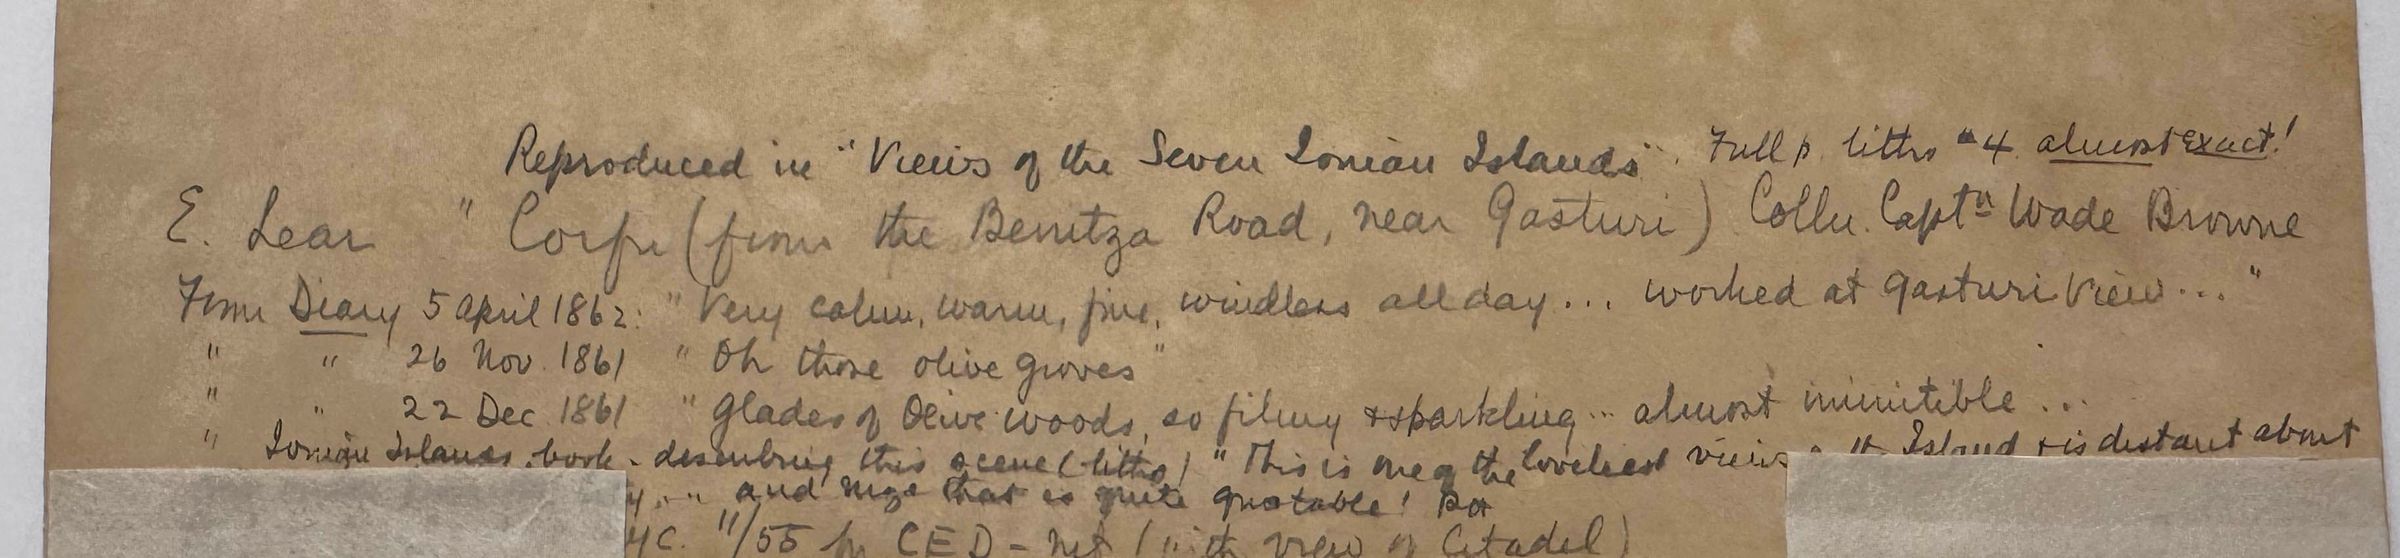 Reproduced in "Views of the Seven Ionian Islands". Full p. litho "4 almost exact!
E. Lear " Corfu (from the Benitza Road, near Gasturi) Colln. Captn Wade Browne
From Diary 5 April 1862: "Very calm, warm, fine, windless all day... worked at Gasturi View..."
" " 26 Nov. 1861 "Oh those olive groves"
" " 22 Dec. 1861 "Glades of Olive woods, so filmy & sparkling... almost inimitible...
" Ionian Islands book - describing this scene (litho) "This is one of the loveliest views Island & is distant about
and that is quite quotable!
11/55 CED - not (with view of Citadel)